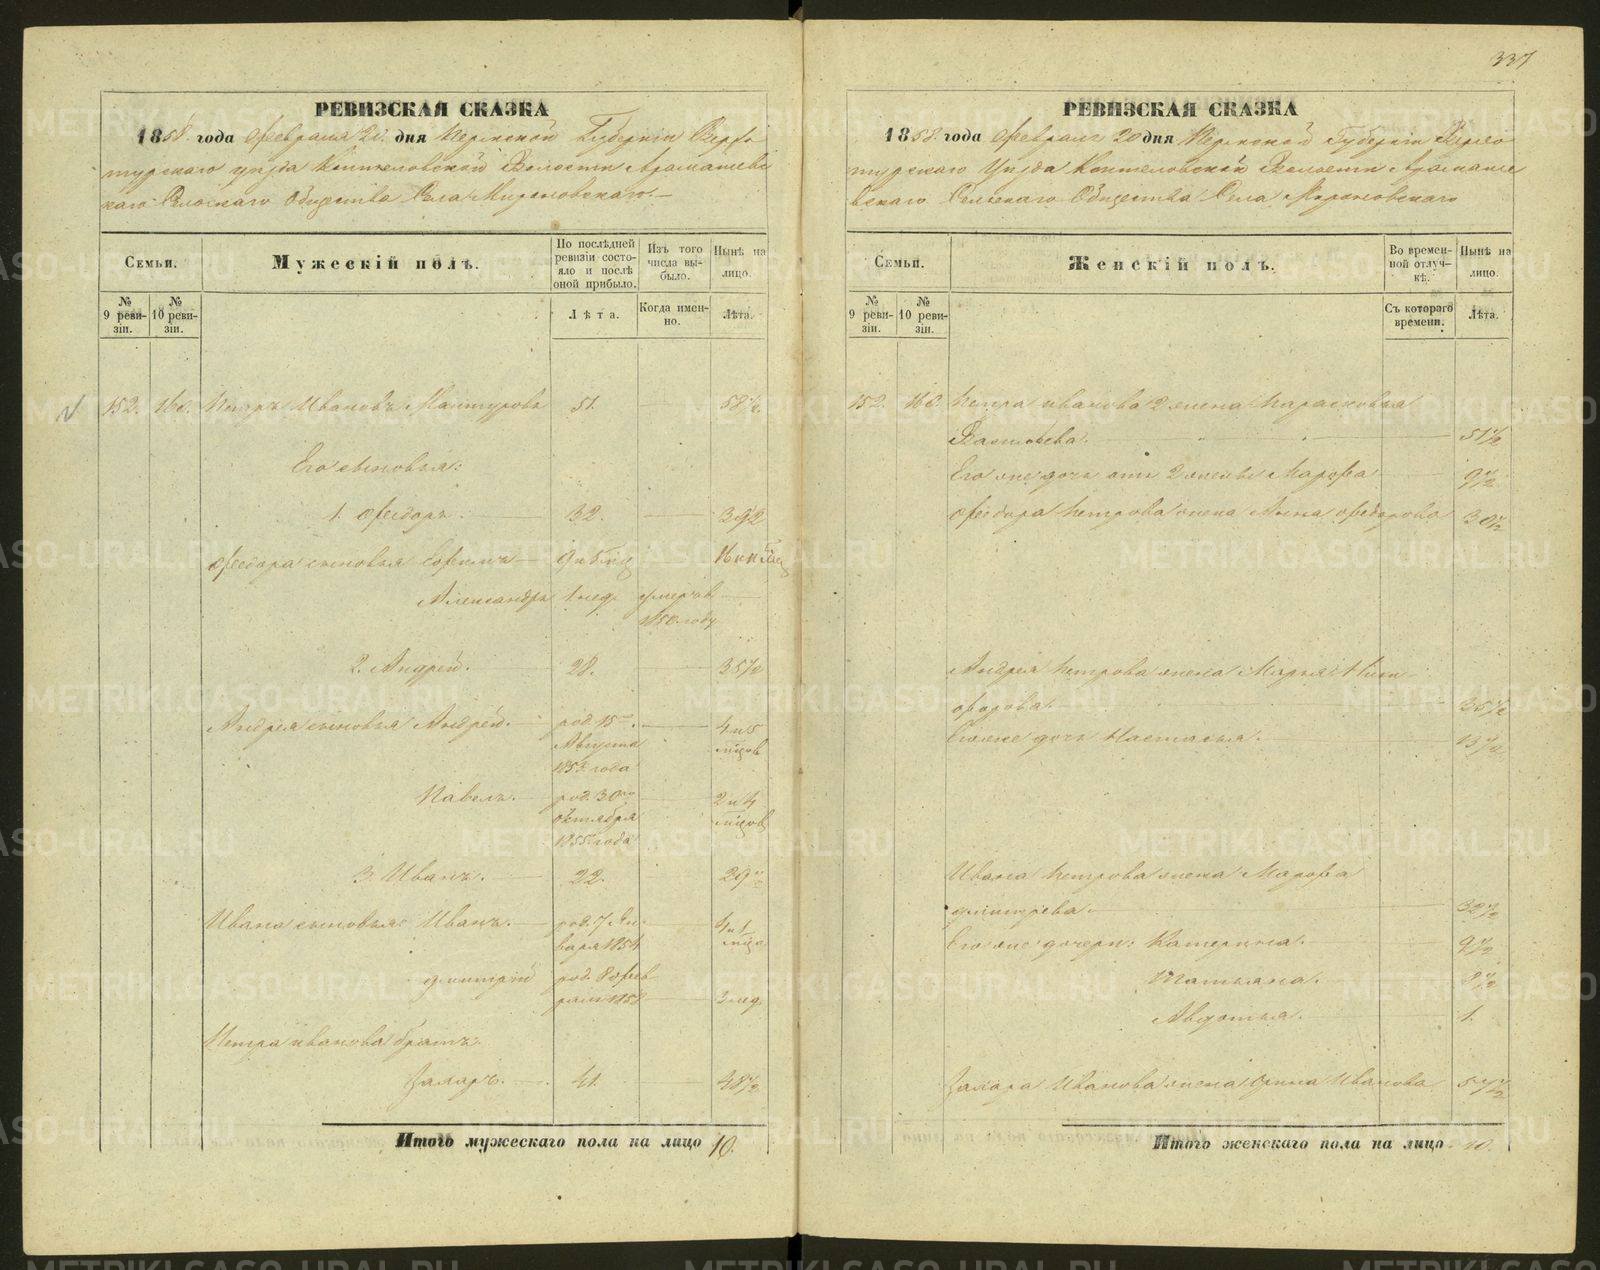 337
РЕВИЗСКАЯ СКАЗКА
1858 года Февраля 20 дня Пермской Губернии Верхо
турского уезда Коптеловской Волости Арамашевс
каго Сельскаго Общества Села Мироновскаго.
Семьи.
Мужескій полъ.
По послѣдней ревизіи состояло и послѣ оной прибыло.
Изъ того числа выбыло.
Нынѣ на лицо.
№ 9 ревизіи.
№ 10 ревизіи.
Лѣта.
Когда именно.
Лѣта.
152. 166. Петръ Ивановъ Мантуровъ 51. 58½
Его сыновья:
1. Ѳеодоръ 32. 39½
Ѳеодора сыновья 9 и 5 мц 16 и
Александръ 1 нед. умеръ в
1850 году
2. Андрей. 28. 35½
Андрея сыновья Андрей. род. 15 4 и 5
Августа мцов
года
Павелъ. род. 30го 2 и 4
октября мцов
1855 года
3. Иванъ. 22. 29½
Ивана сыновья: Иванъ. род. 7 Ян- 4 и 1
варя 1854 мца
Дмитрій род. 8 Фев
раля 1858 2 нед.
Петра Иванова братъ.
Захаръ. 41. 48½
Итого мужескаго пола на лицо 10.
РЕВИЗСКАЯ СКАЗКА
1858 года Февраля 20 дня Пермской Губернии Верхо
турскаго Уезда Коптеловской Волости Арамаше
вскаго Сельскаго Общества Села Мироновскаго
Семьи.
Женскій полъ.
Во временной отлучкѣ.
Нынѣ на лицо.
№ 9 ревизіи.
№ 10 ревизіи.
Съ котораго времени.
Лѣта.
152. 166. Петра Иванова 2 жена Парасковья
51½
Его же дочь отъ 2 жены Марфа 9½
Ѳеодора Петрова жена Анна Ѳедорова 30½
Андрея Петрова жена Марья Ники
форова. 35½
Его же дочь Настасья. 13½
Ивана Петрова жена Марфа
Дмитрева. 32½
Его же дочери: Катерина. 9½
Татьяна. 8½
Авдотья. 1.
Захара Иванова жена Ирина Иванова
Итого женскаго пола на лицо 10.
METRIKI.GASO-URAL.RU